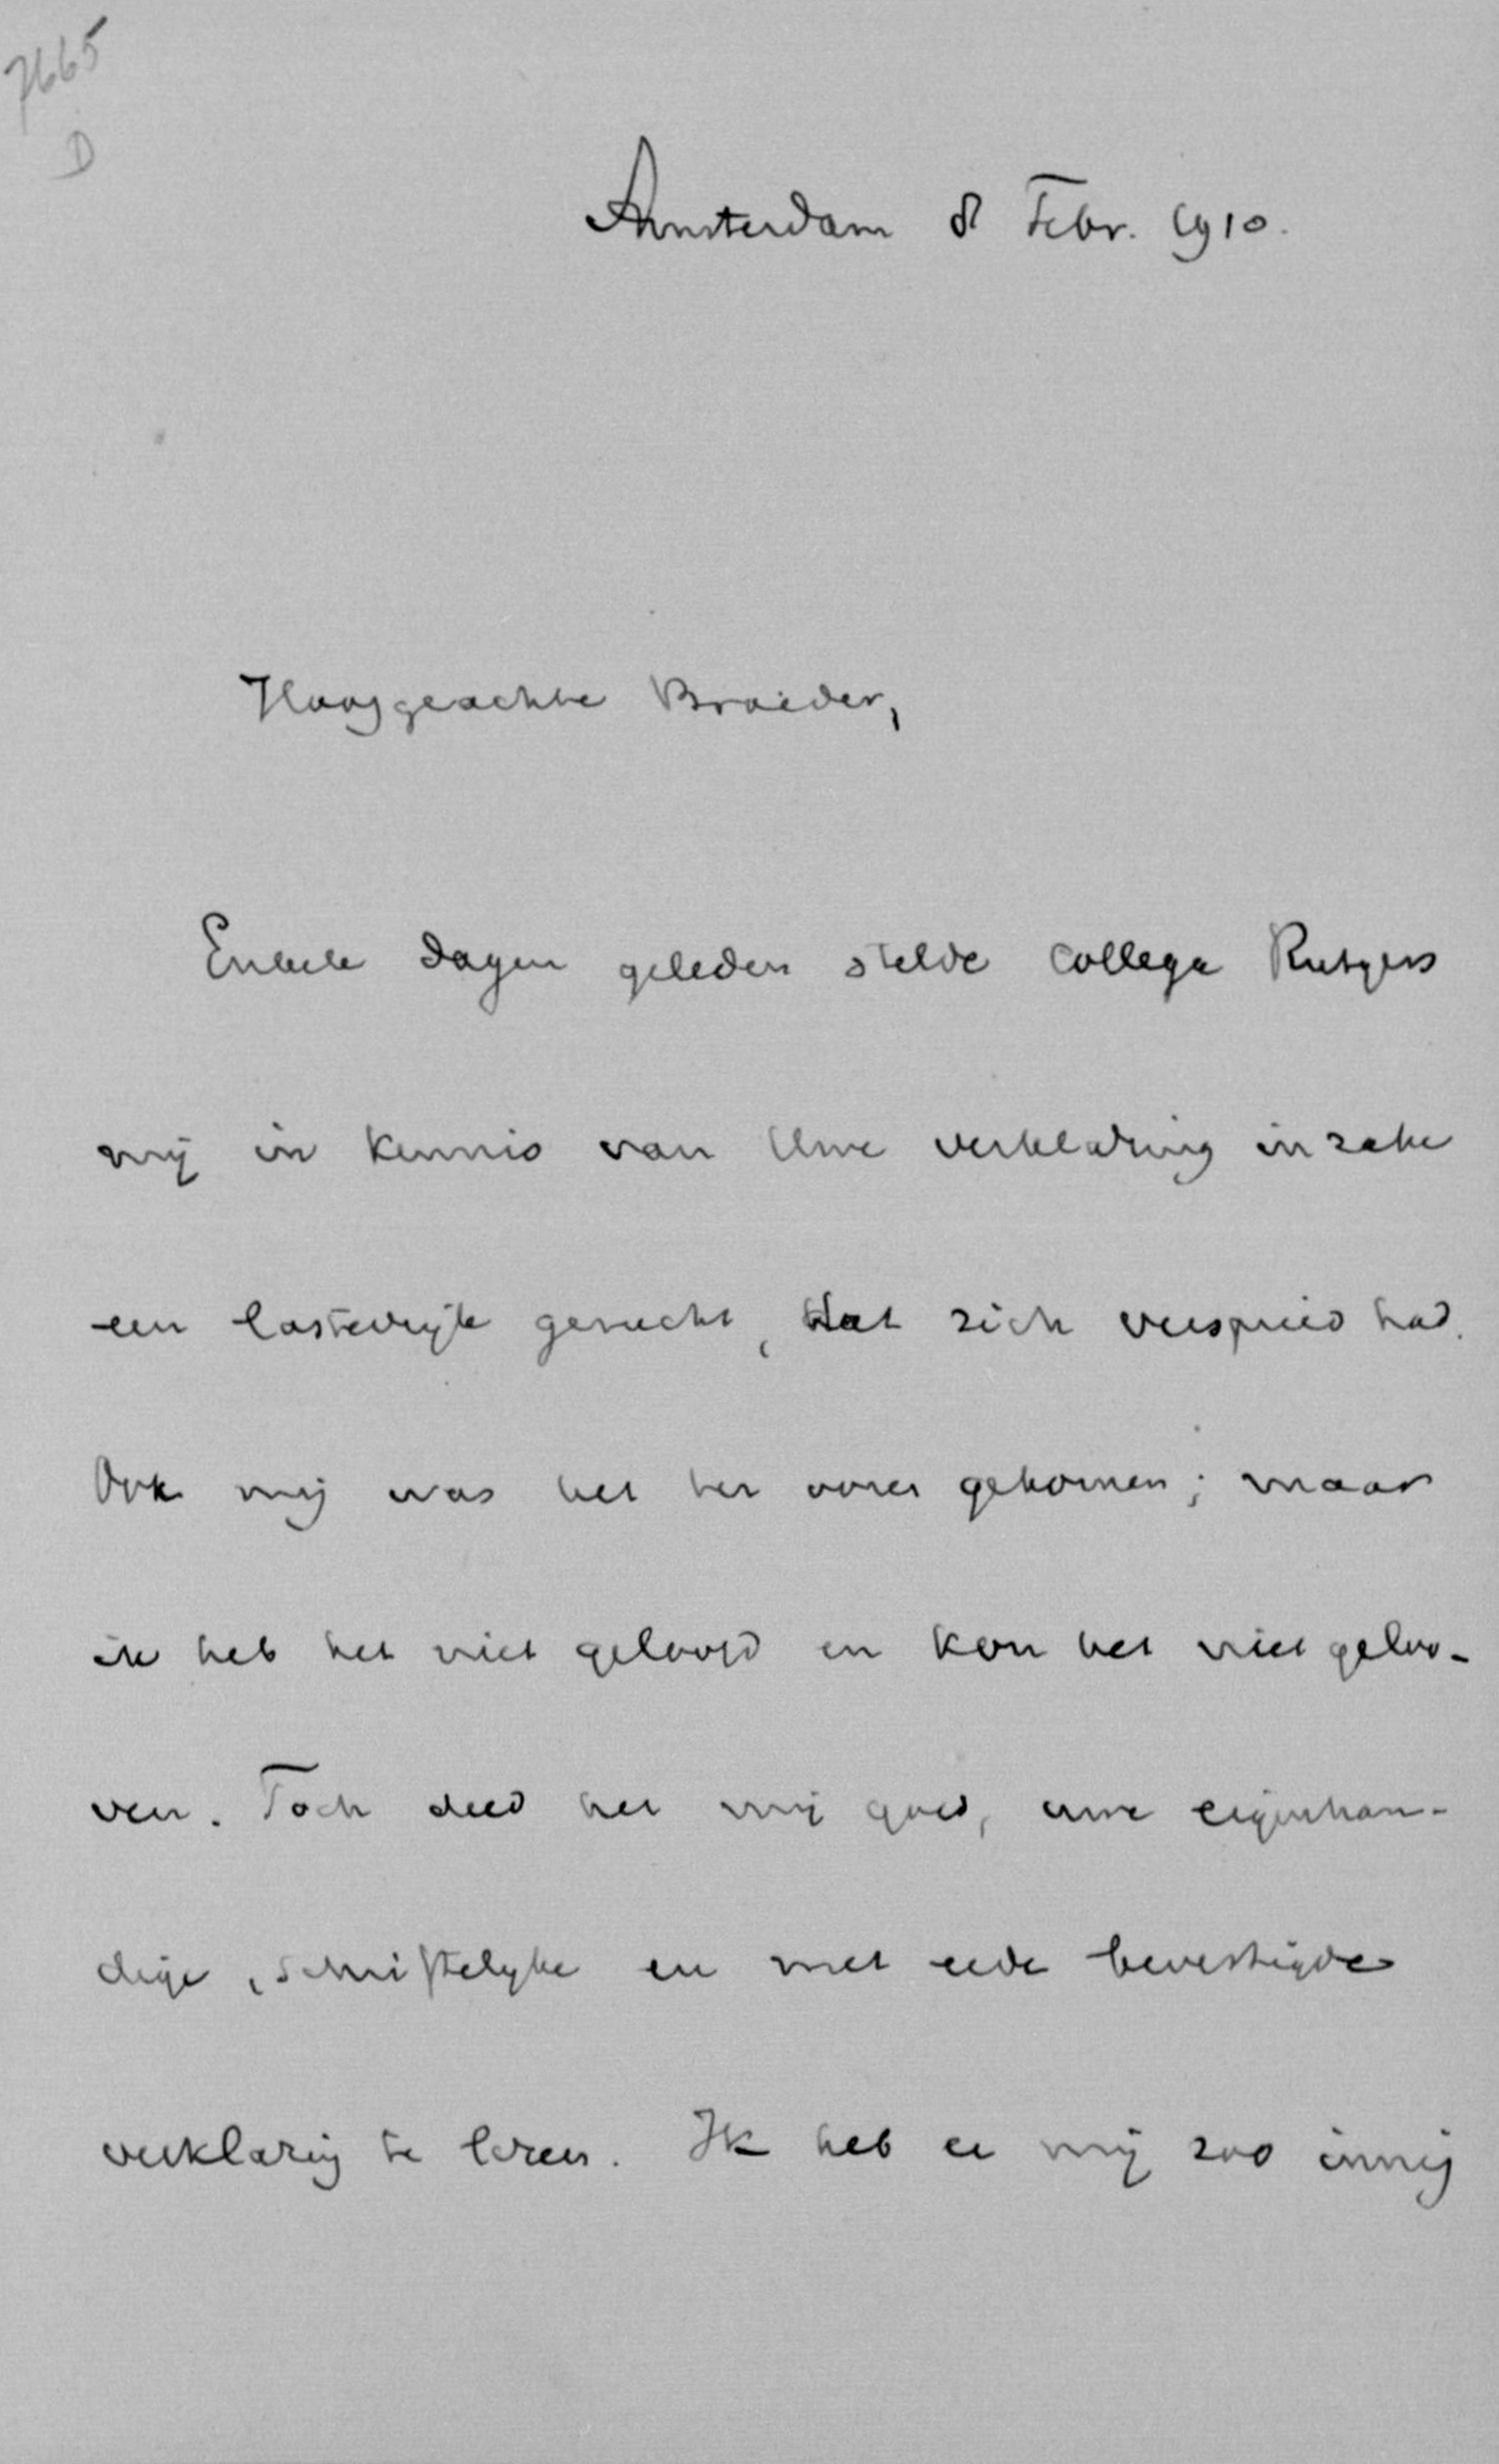 7665
D
Amsterdam 8 Febr. 1910.
Hooggeachte Broeder,
Enkele dagen geleden stelde collega Rutgers
mij in kennis van Uwe verklaring inzake
een lasterlijk gerucht, dat zich verspreid had.
Ook mij was het ter oore gekomen; maar
ik heb het niet geloofd en kon het niet geloo-
ven. Toch deed het mij goed, uwe eigenhan-
dige, schriftelijke en met eede bevestigde
verklaring te lezen. Ik heb er mij zoo innig